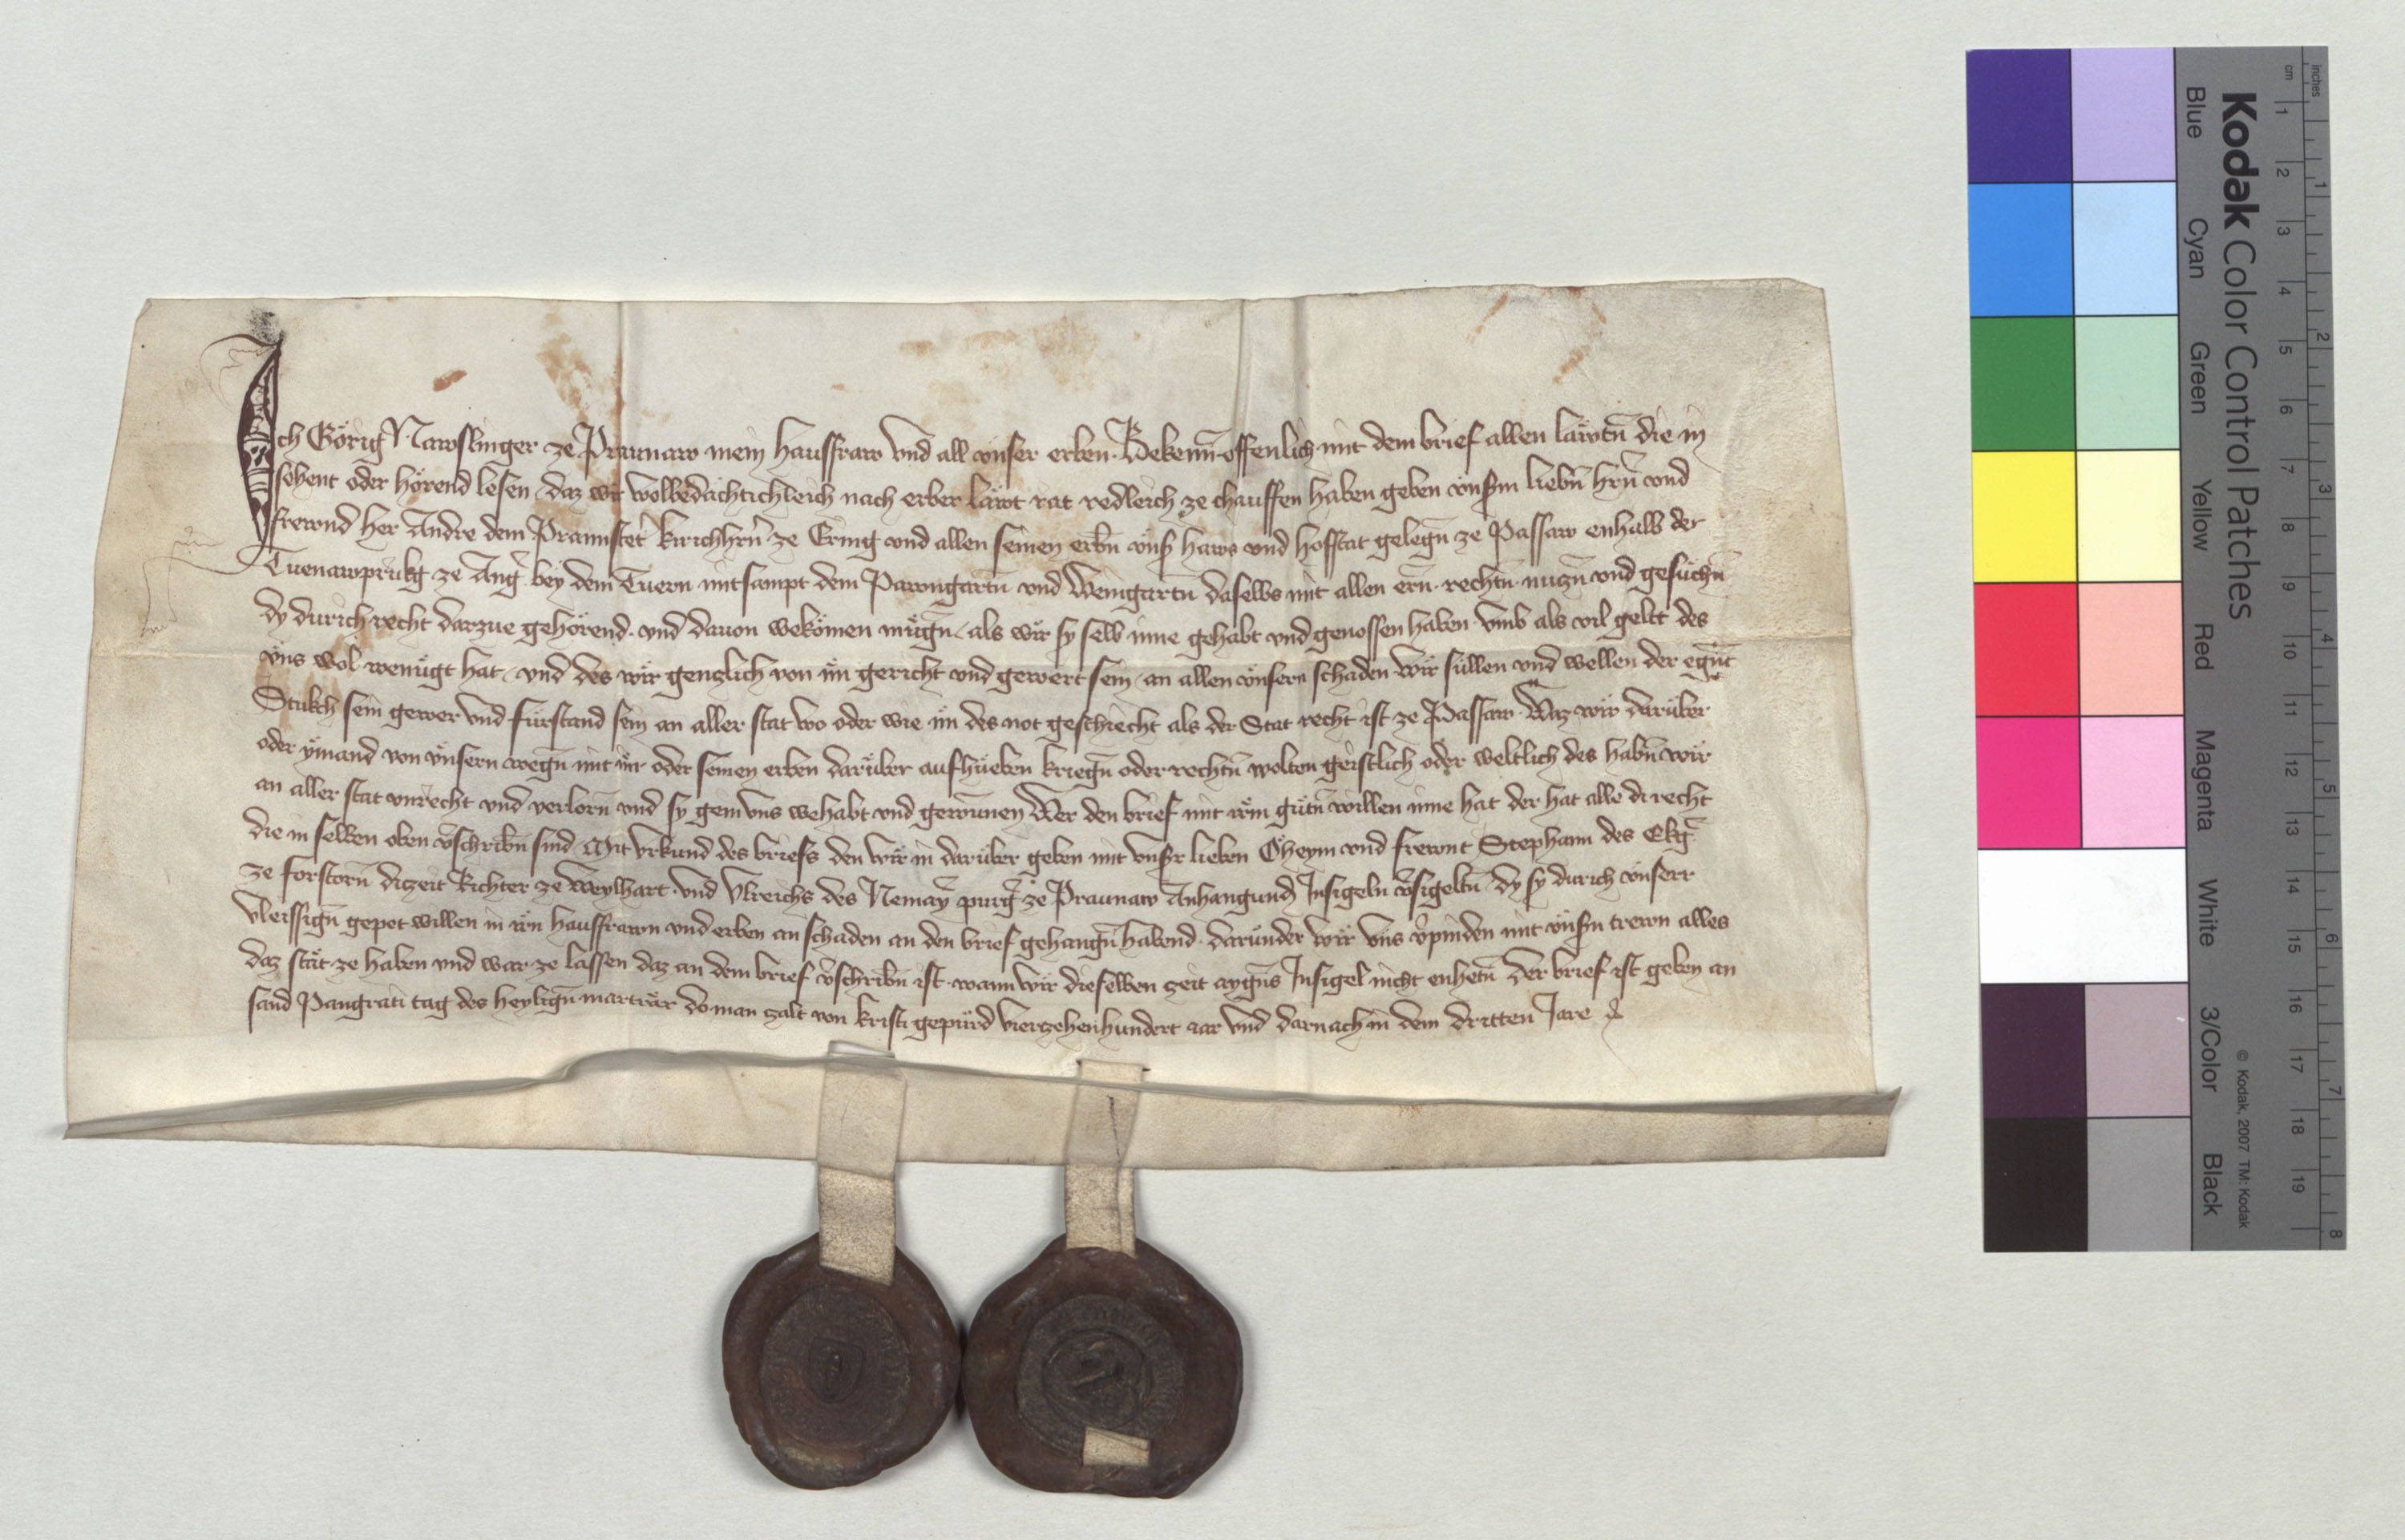 Ich Görig Nawslinger ze Praunaw mein hausfraw vnd all vnser erben · Bekenn̄ offenlich mit dem brief allen läwtn̄ die in
sehent oder hörend lesen daz wir wolbedächtichleich nach erber läwt rat redleich ze chauffen haben geben vnsm liebn̄ hrn̄ vnd
frewnd her Andre dem Prannstet̄ kirichhrn̄ ze Ering vnd allen seinen erbn̄ vns̄ haws vnd hofstat gelegn̄ ze Passaw enhalb der
Tuenawprukg ze Anḡ bey dem Tuern mitsampt dem Pawngartn̄ vnd Weingartn̄ daselbs mit allen ern̄ · rechtn̄ · nuzn̄ vnd gesuchn̄
dy durich recht darzue gehörend · vnd dauon wekömen mügn̄ als wir sy selb inne gehabt vnd genossen haben vmb als vil geltt des
vns wol wenügt hat vnd des wir genzlich von im gericht vnd gewert sein an allen vnsern schaden wir süllen vnd wellen der egn̄t
Stukch sein gewer vnd fürstand sein an aller stat wo oder wie im des not geschiecht als der Stat recht ist ze Passaw · Waz wir darüber
oder ymand von vnsern wegn̄ mit im oder seinen erben darüber aufhüeben kriegn̄ oder rechtn̄ wolten geistlich oder weltlich des habn̄ wir
an aller stat vnrecht vnd verlorn̄ vnd sy gein vns wehabt vnd gewunnen Wer den brief mit irm gutn̄ willen inne hat der hat alle di recht
die in selben oben v̄schribn̄ sind Mit vrkund des briefs den wir in darüber geben mit vnsr lieben Öheym vnd frewnt Stephann des Ekḡ
ze forstorn̄ dizeit Richter ze Weylhart · vnd Vlreichs des Nemay̆ purḡ ze Praunaw Anhangund Insigeln v̄sigeltn̄ dy sy durich vnserr
vleissign̄ gepet willen in irn hausfrawn vnd erben an schaden an den brief gehangn̄ habend · darunder wir vns v̄pinden mit vnsn trewn alles
daz stät ze haben vnd war ze lassen daz an dem brief v̄schribn̄ ist · wann wir dieselben zeit aygn̄s Insigel nicht enhetn̄ Der brief ist geben an
sand Pangratii tag des heylign̄ marträr do man zalt von kristi gepürd vierzehenhundert iar vnd darnach in dem dritten Jare
Kodak Color Control Patches
Blue Cyan Green Yellow Red Magenta White 3/Color Black
cm 1 2 3 4 5 6 7 8 9 10 11 12 13 14 15 16 17 18 19
inches 1 2 3 4 5 6 7 8
© Kodak, 2007 TM: Kodak